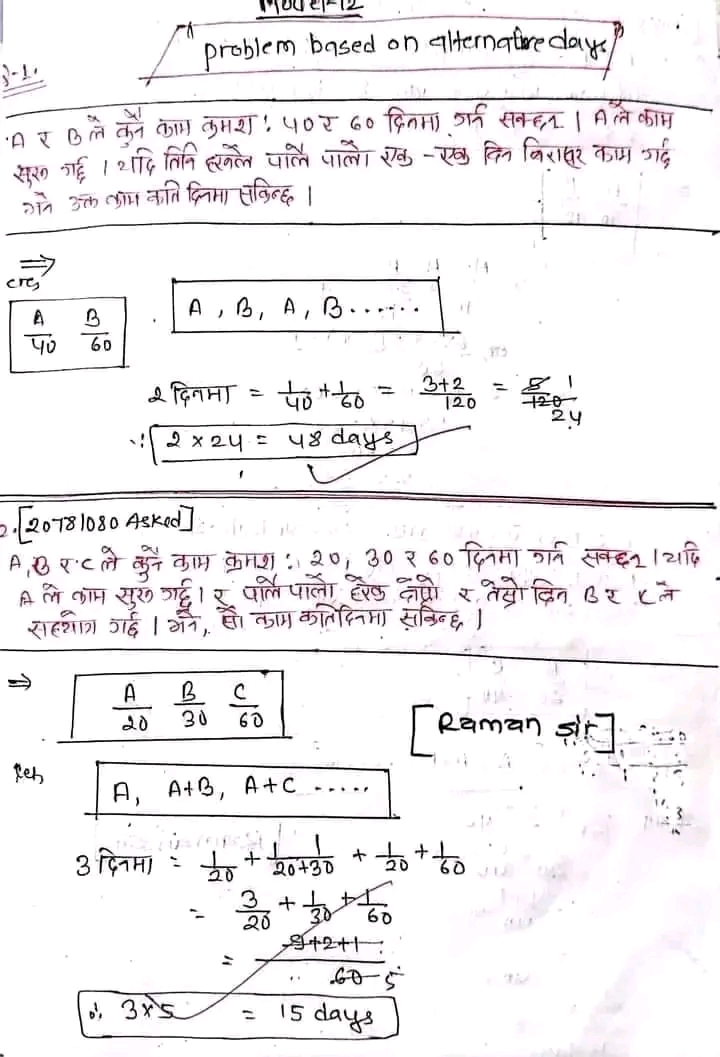 Model-12
problem based on alternative days
A र B ले कुनै काम क्रमश: ४० र ६० दिनमा गर्न सक्छन् । A ले काम
सुरु गर्छ । यदि तिनिहरुले पालै पालो एक-एक दिन बिराएर काम गर्दछ
भने उक्त काम कति दिनमा सकिन्छ ।
⇒
A B
40 60
A, B, A, B......
2 दिनमा = 1/40 + 1/60 = 3+2/120 = 5/120 1/24
∴ 2 × 24 = 48 days
2. [2078/080 Asked]
A, B र C ले कुनै काम क्रमश: 20, 30 र 60 दिनमा गर्न सक्छन् । यदि
A ले काम सुरु गर्छ । र पालै पालो हरेक दोस्रो र तेस्रो दिन B र C ले
सहयोग गर्छ । भने, सो काम कति दिनमा सकिन्छ ।
⇒ A/20 B/30 C/60
[Raman sir]
A, A+B, A+C .....
3 दिनमा = 1/20 + 1/20+1/30 + 1/20 + 1/60
= 3/20 + 1/30 + 1/60
= 9+2+1/60 5
∴ 3×5 = 15 days